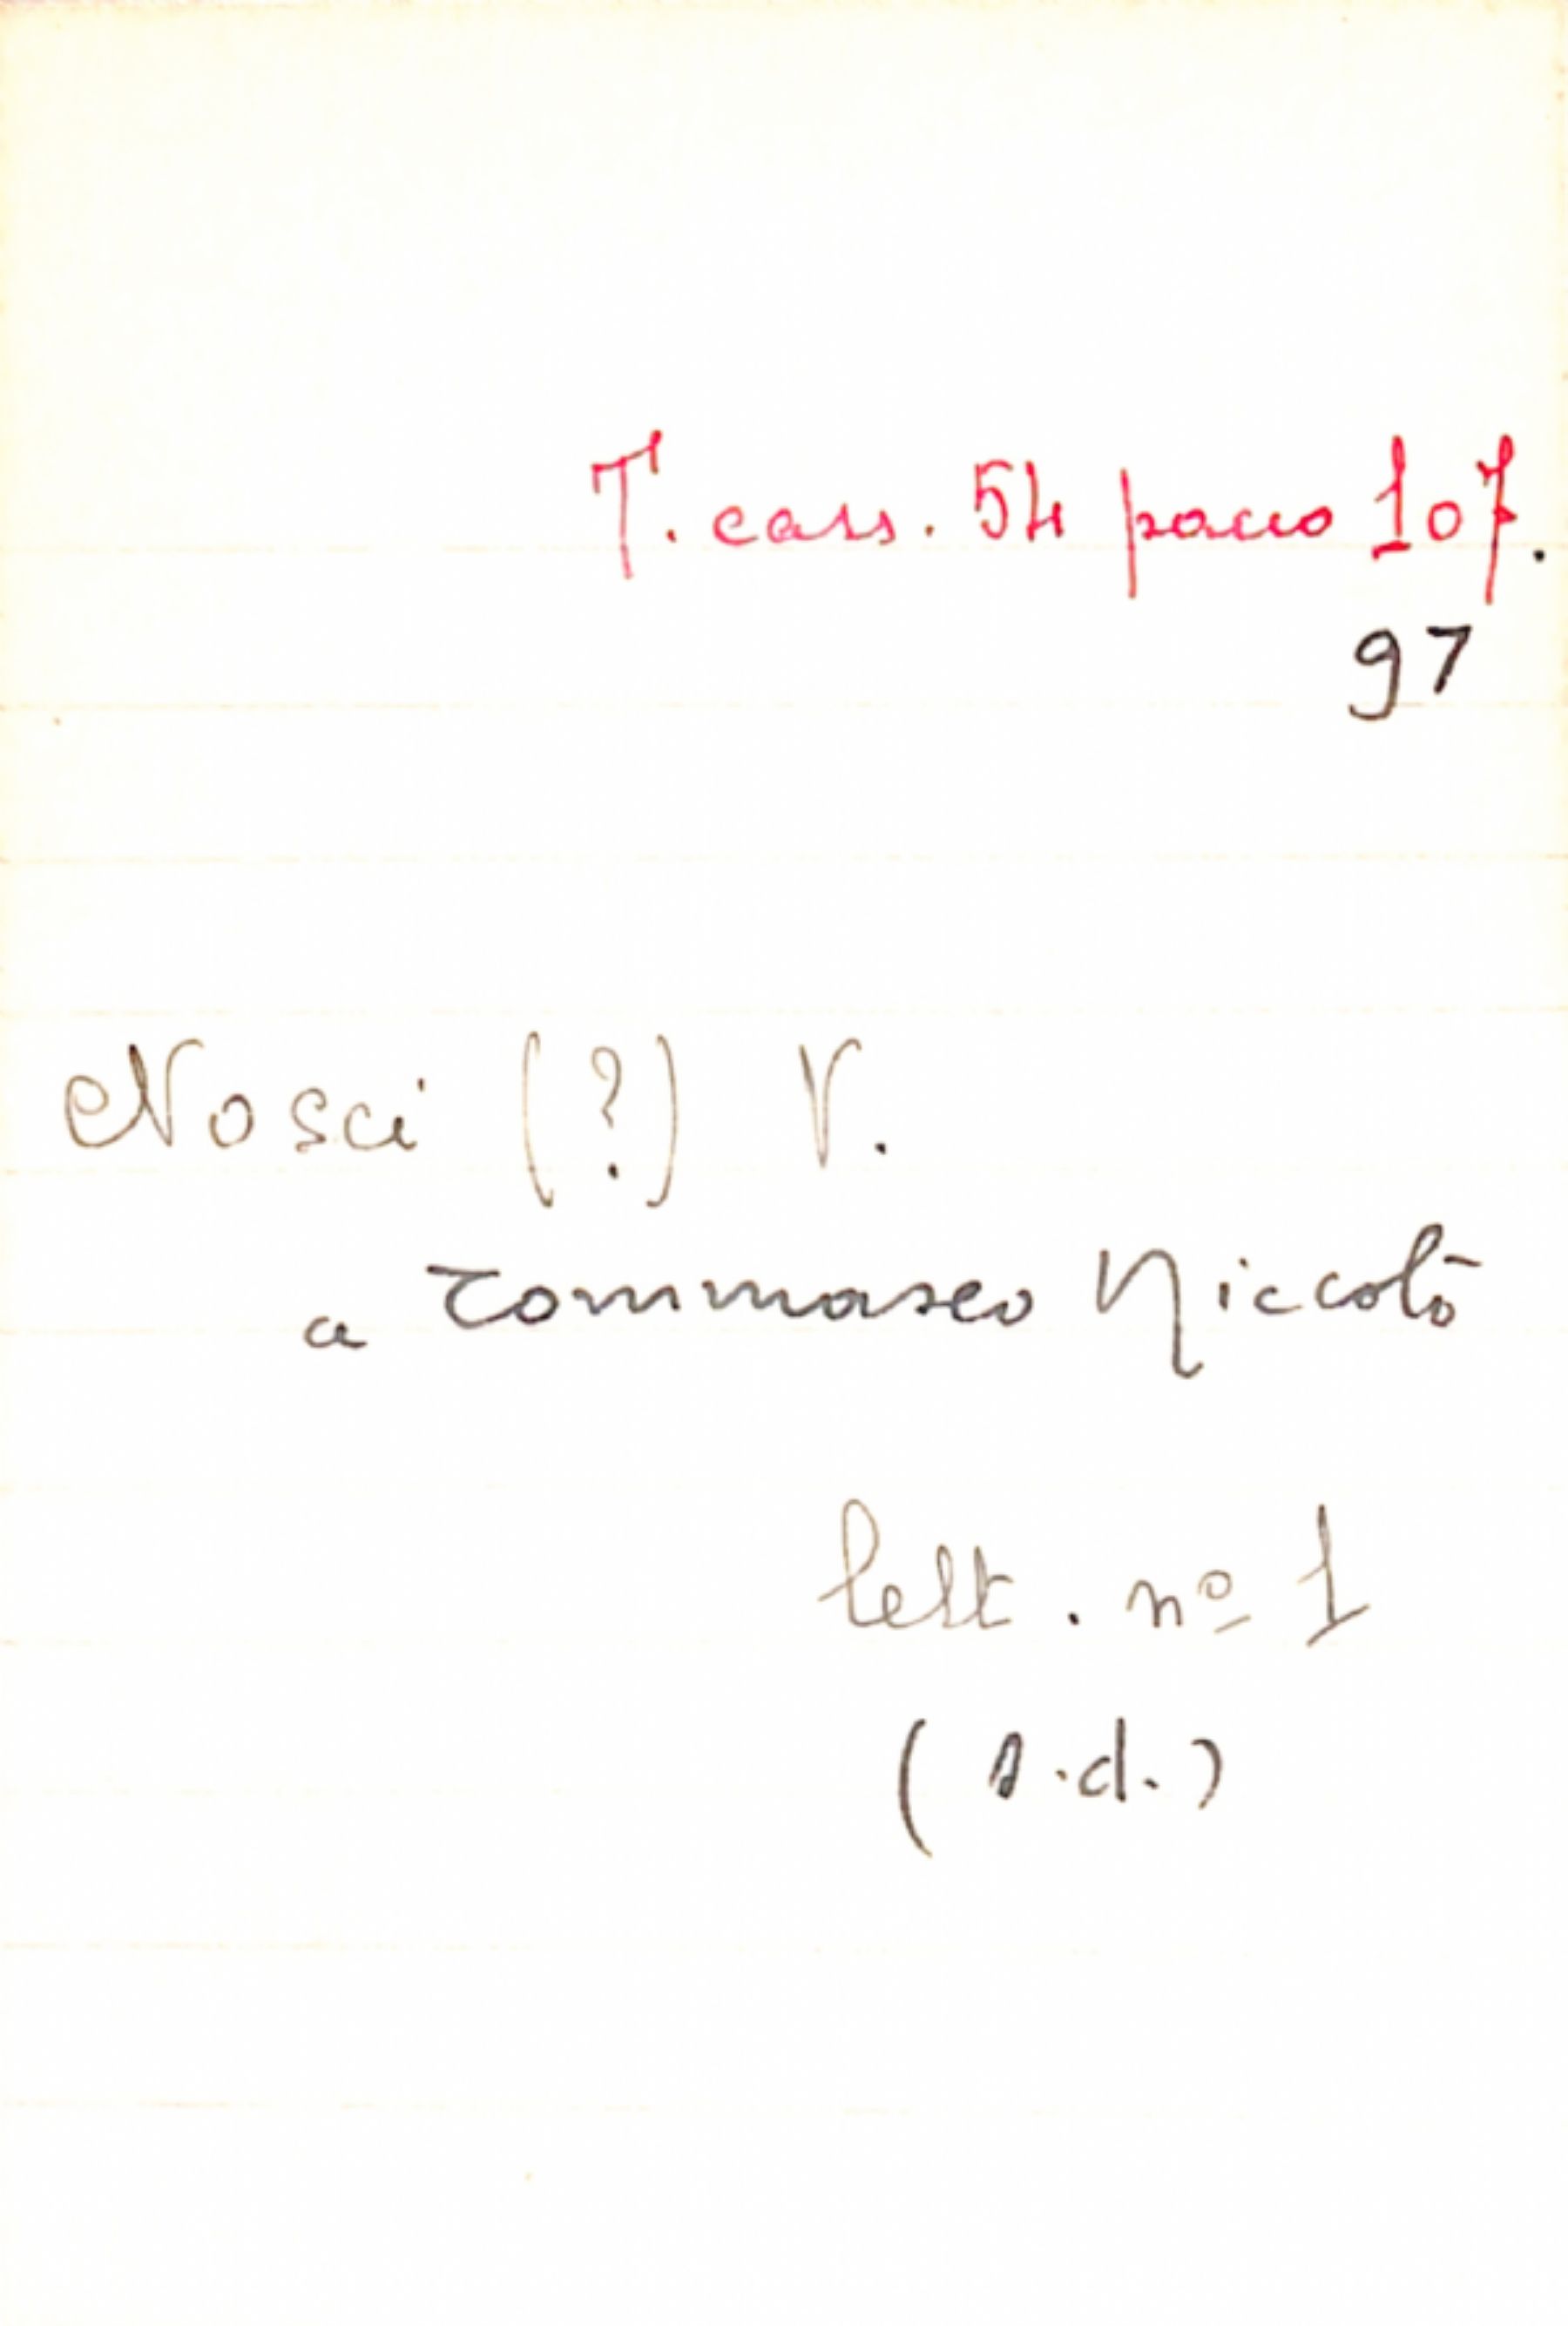 T. cass. 54 pacco 107.
97
Nosci (?) V.
a Tommaseo Niccolò
lett. nº 1
(s.d.)